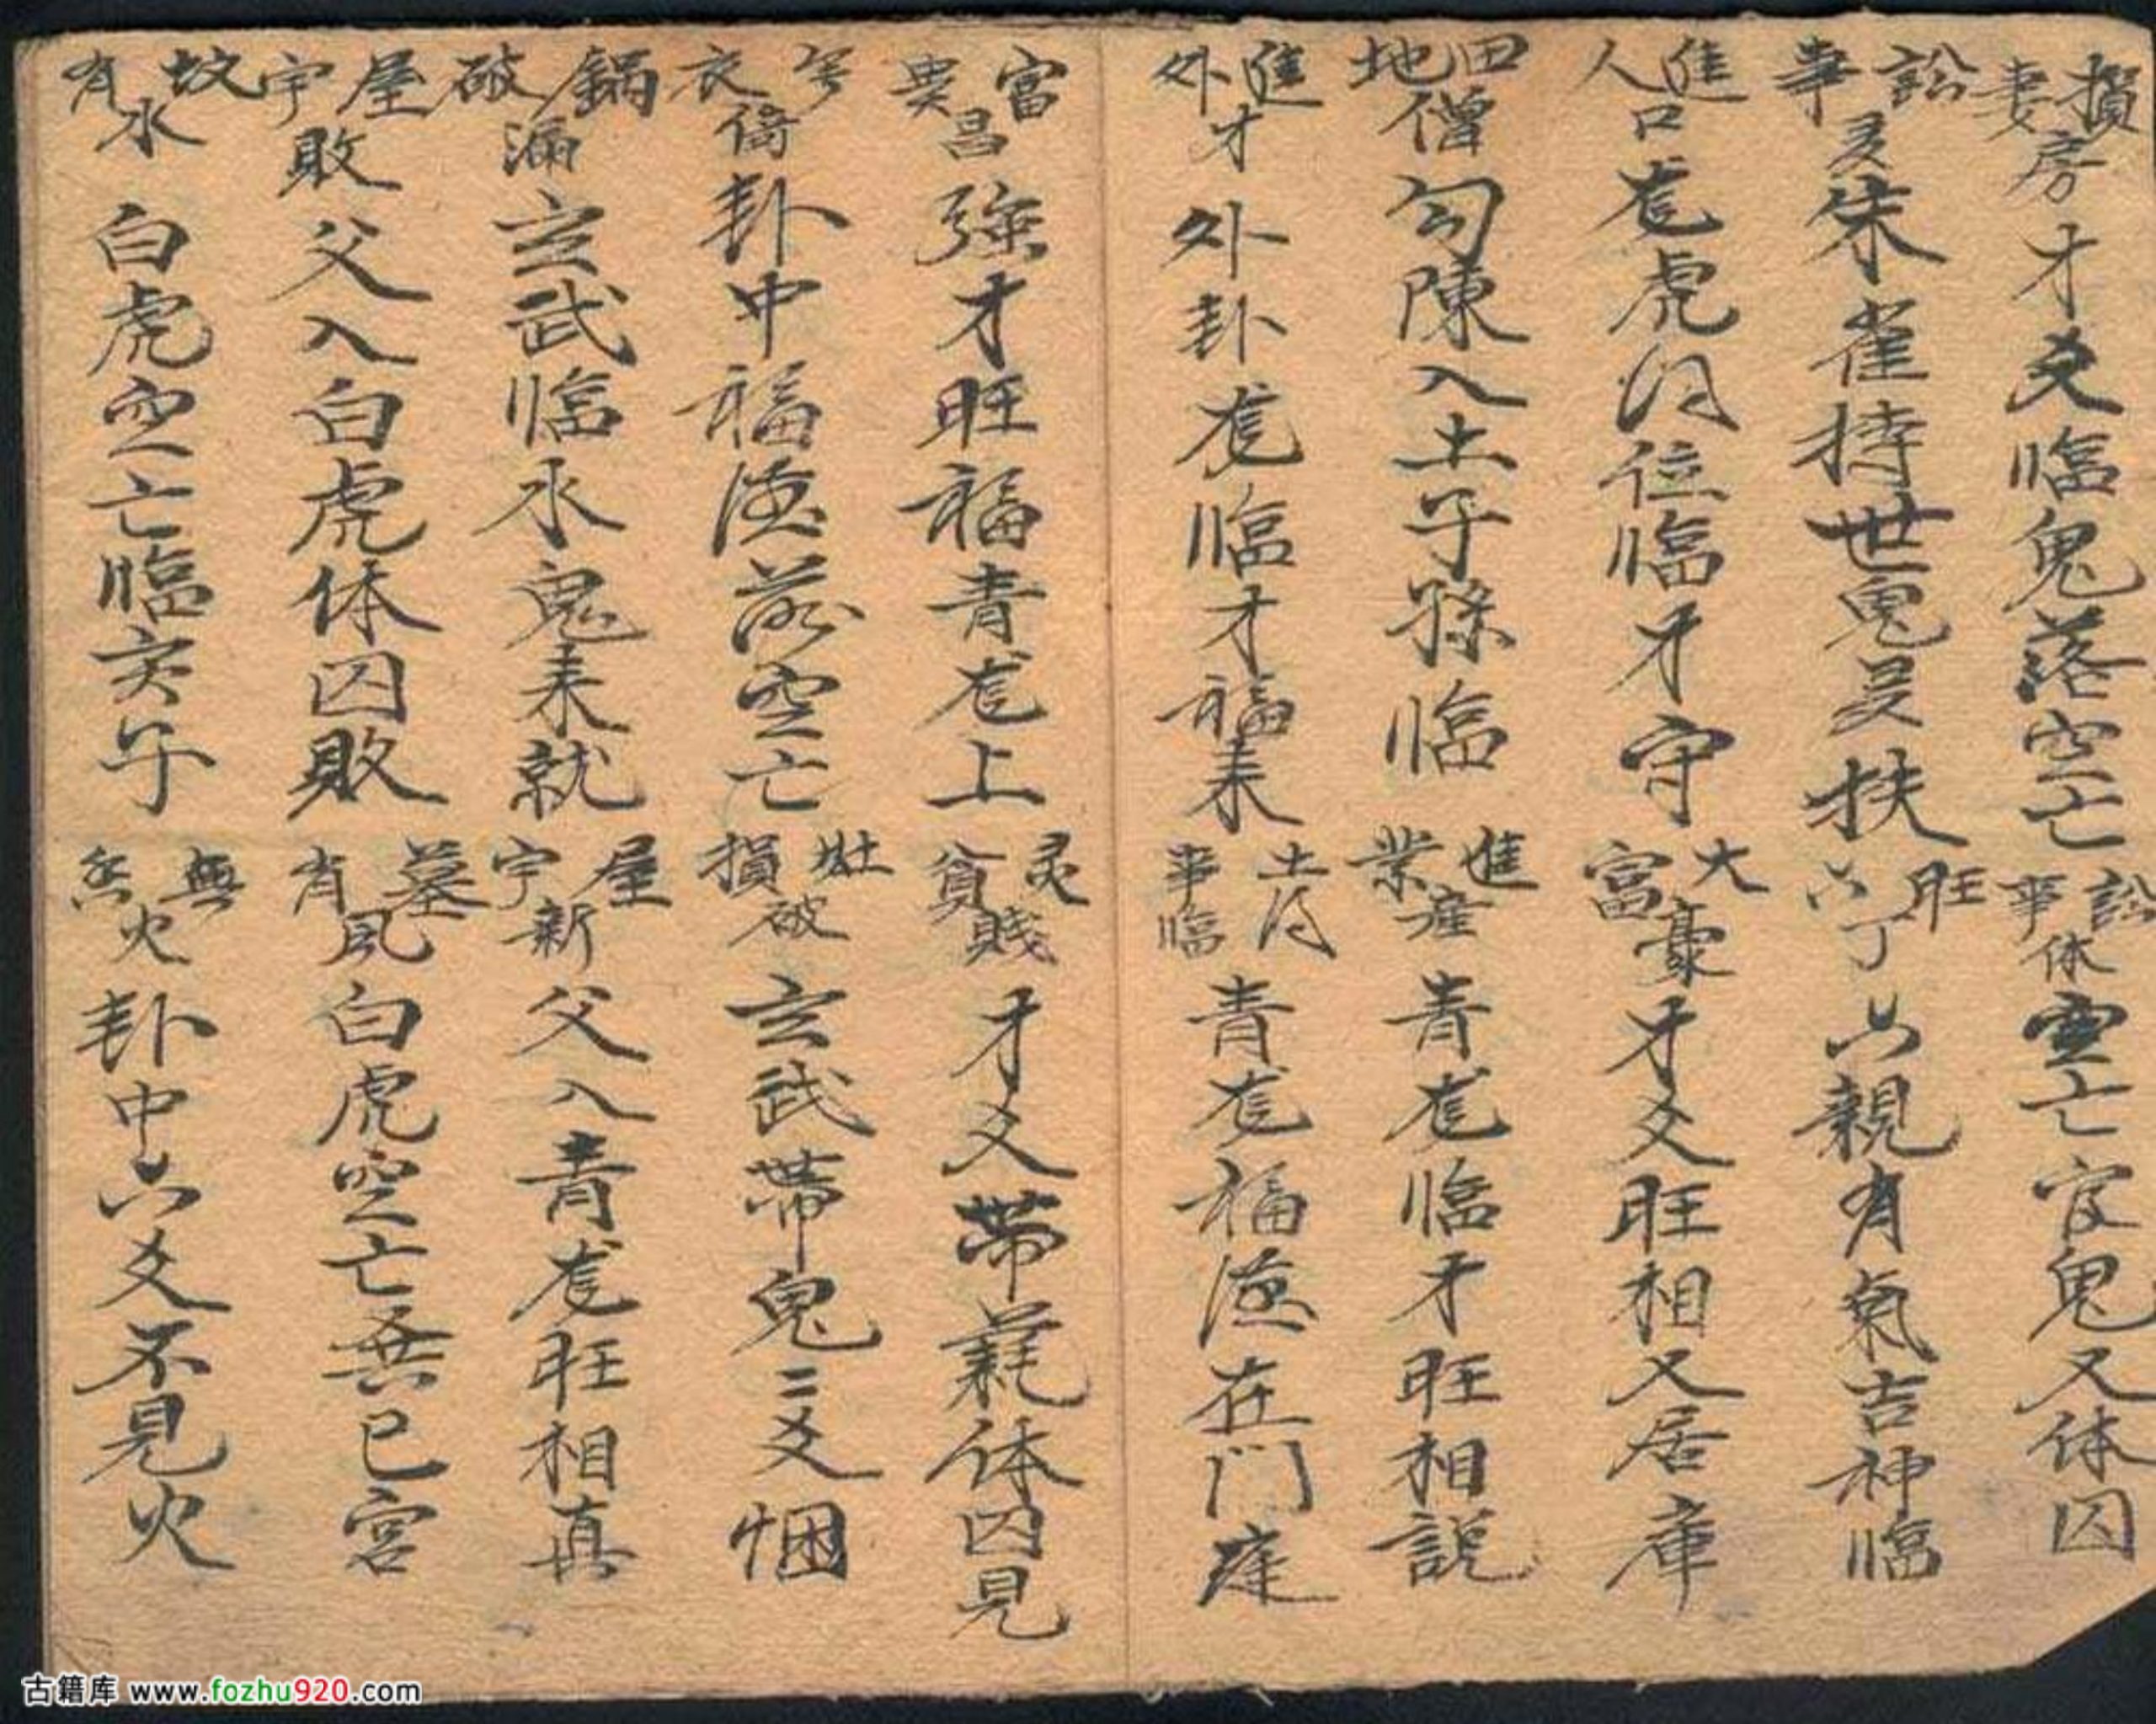 損妻房 才爻臨鬼落空亡
訟事休 空亡官鬼又休囚
訟事 朱雀持世鬼旻扶
旺六丁 六親有氣吉神臨
進人口 龙虎得位臨才守
大富豪 才爻旺相又居庫
田地僧 勾陳入土子孫臨
進業産 青龙臨才旺相説
進外才 外卦龙臨才福来
土事得臨 青龙福德在門庭
富貴昌 強才旺福青龙上
灵貧賤 才爻帶耗休囚見
衣 卦中福德落空亡
灶損破 玄武帶鬼二爻悃
鍋破漏 玄武臨水鬼来就
屋宇新 父入青龙旺相真
屋宇敗 父入白虎休囚敗
墓有風 白虎空亡巳宮
坟有水 白虎空亡臨亥子
無火 卦中六爻不見火
古籍库 www.fozhu920.com